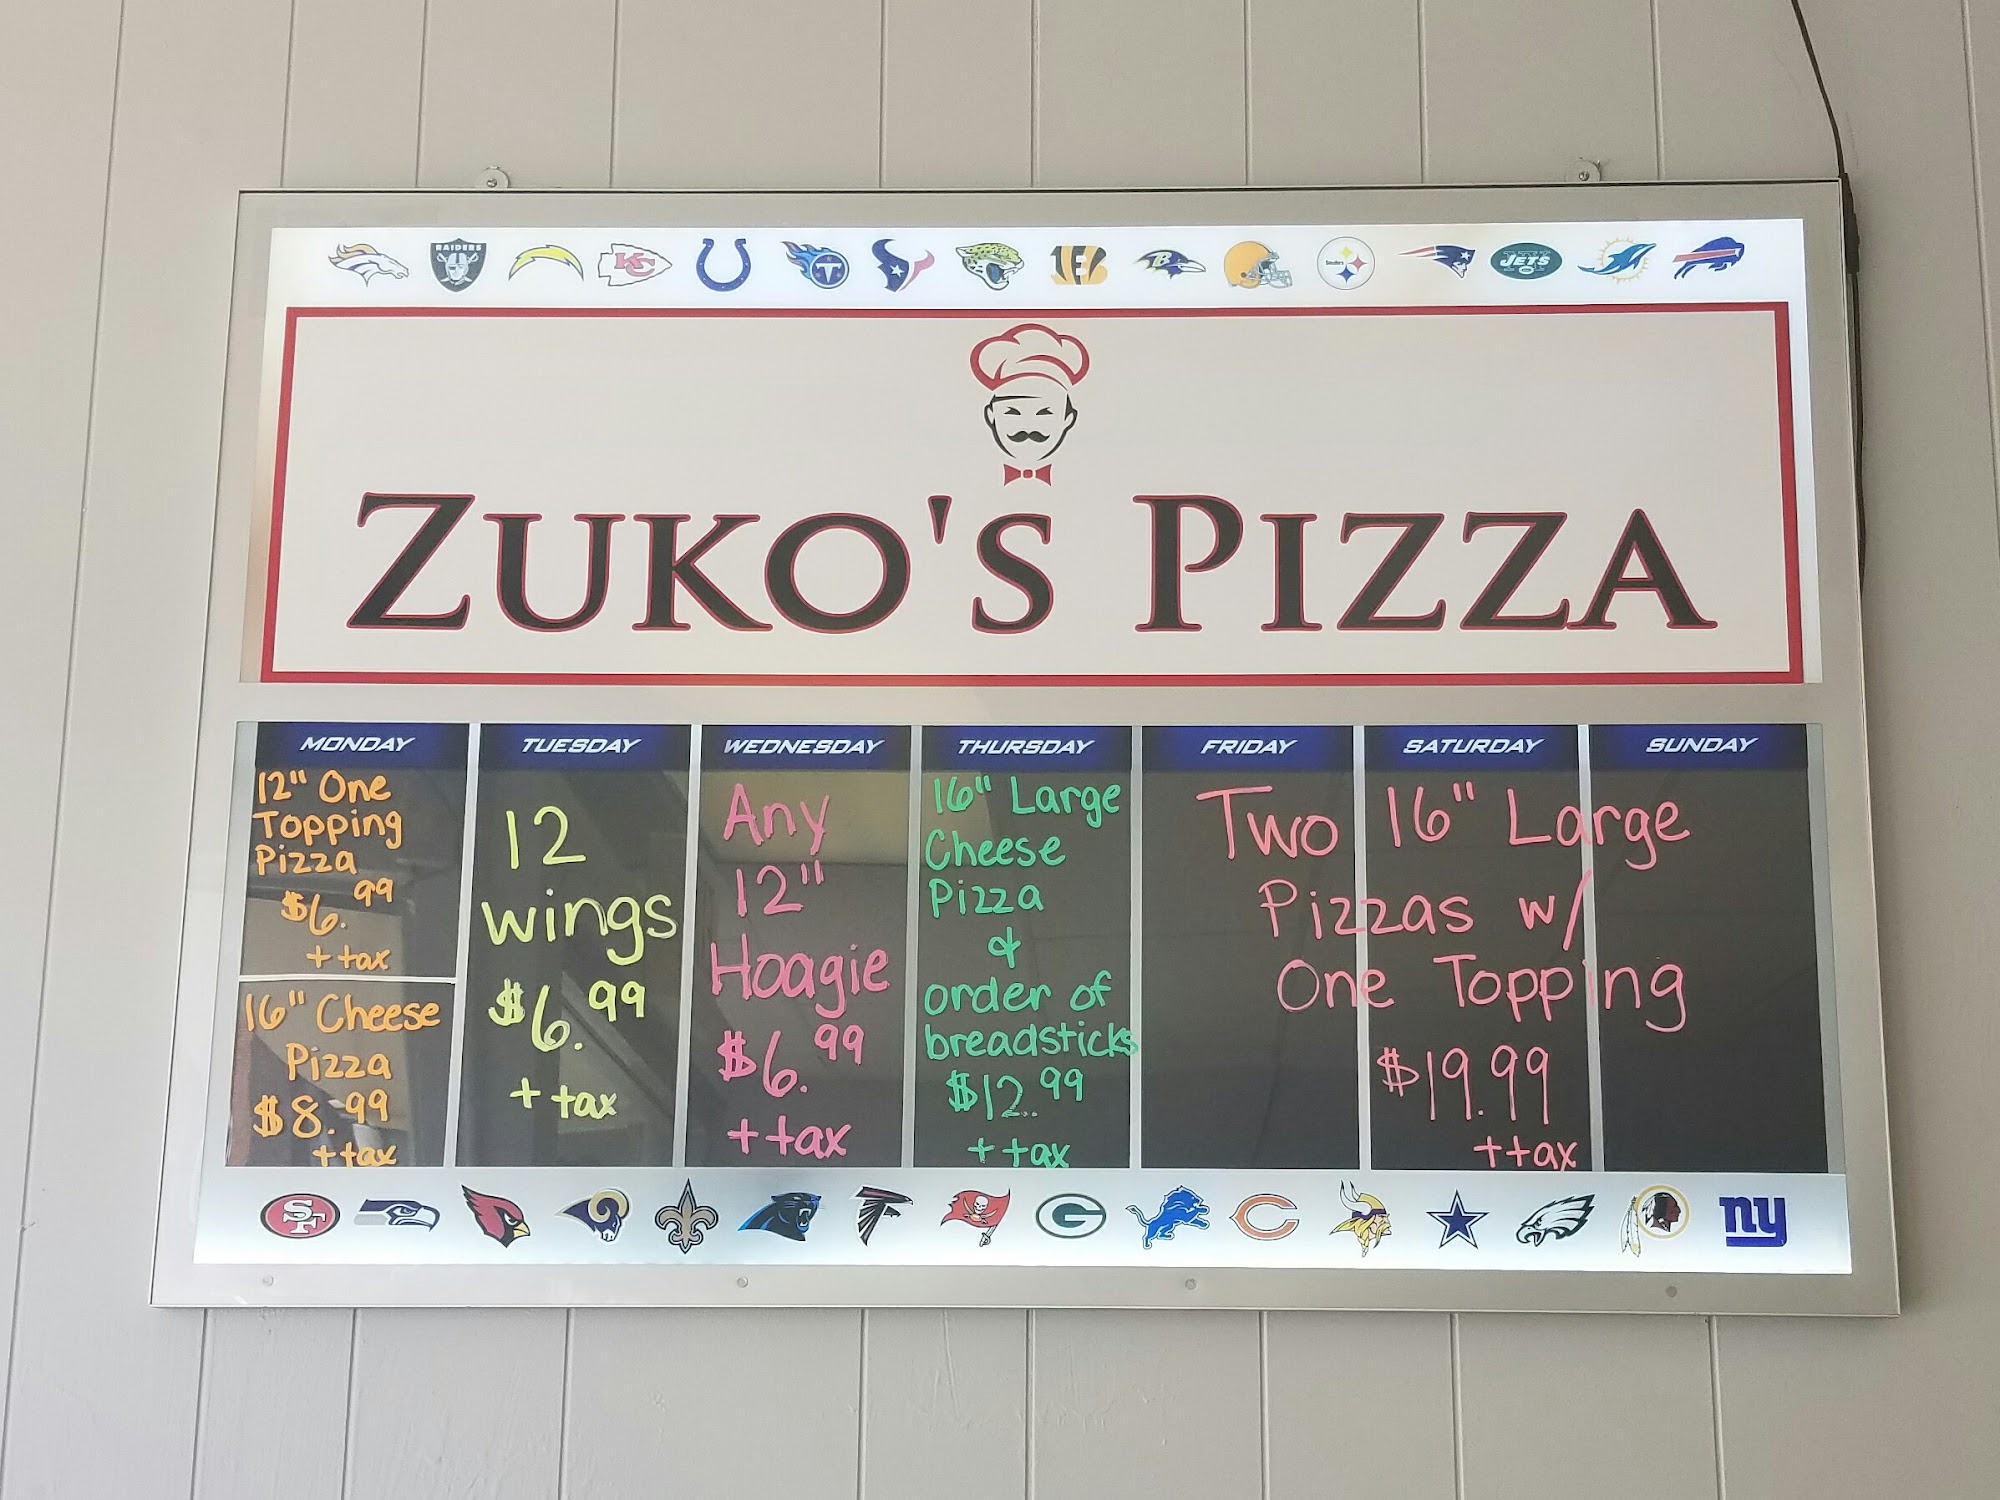 RAIDERS
KC
T
B
Steelers
NY
JETS
ZUKO'S PIZZA
MONDAY
12" One
Topping
Pizza
$6.99
+ tax
16" Cheese
Pizza
$8.99
+ tax
TUESDAY
12
wings
$6.99
+ tax
WEDNESDAY
Any
12"
Hoagie
$6.99
+ tax
THURSDAY
16" Large
Cheese
Pizza
&
order of
breadsticks
$12.99
+ tax
FRIDAY SATURDAY SUNDAY
Two 16" Large
Pizzas w/
One Topping
$19.99
+tax
SF
G
C
ny